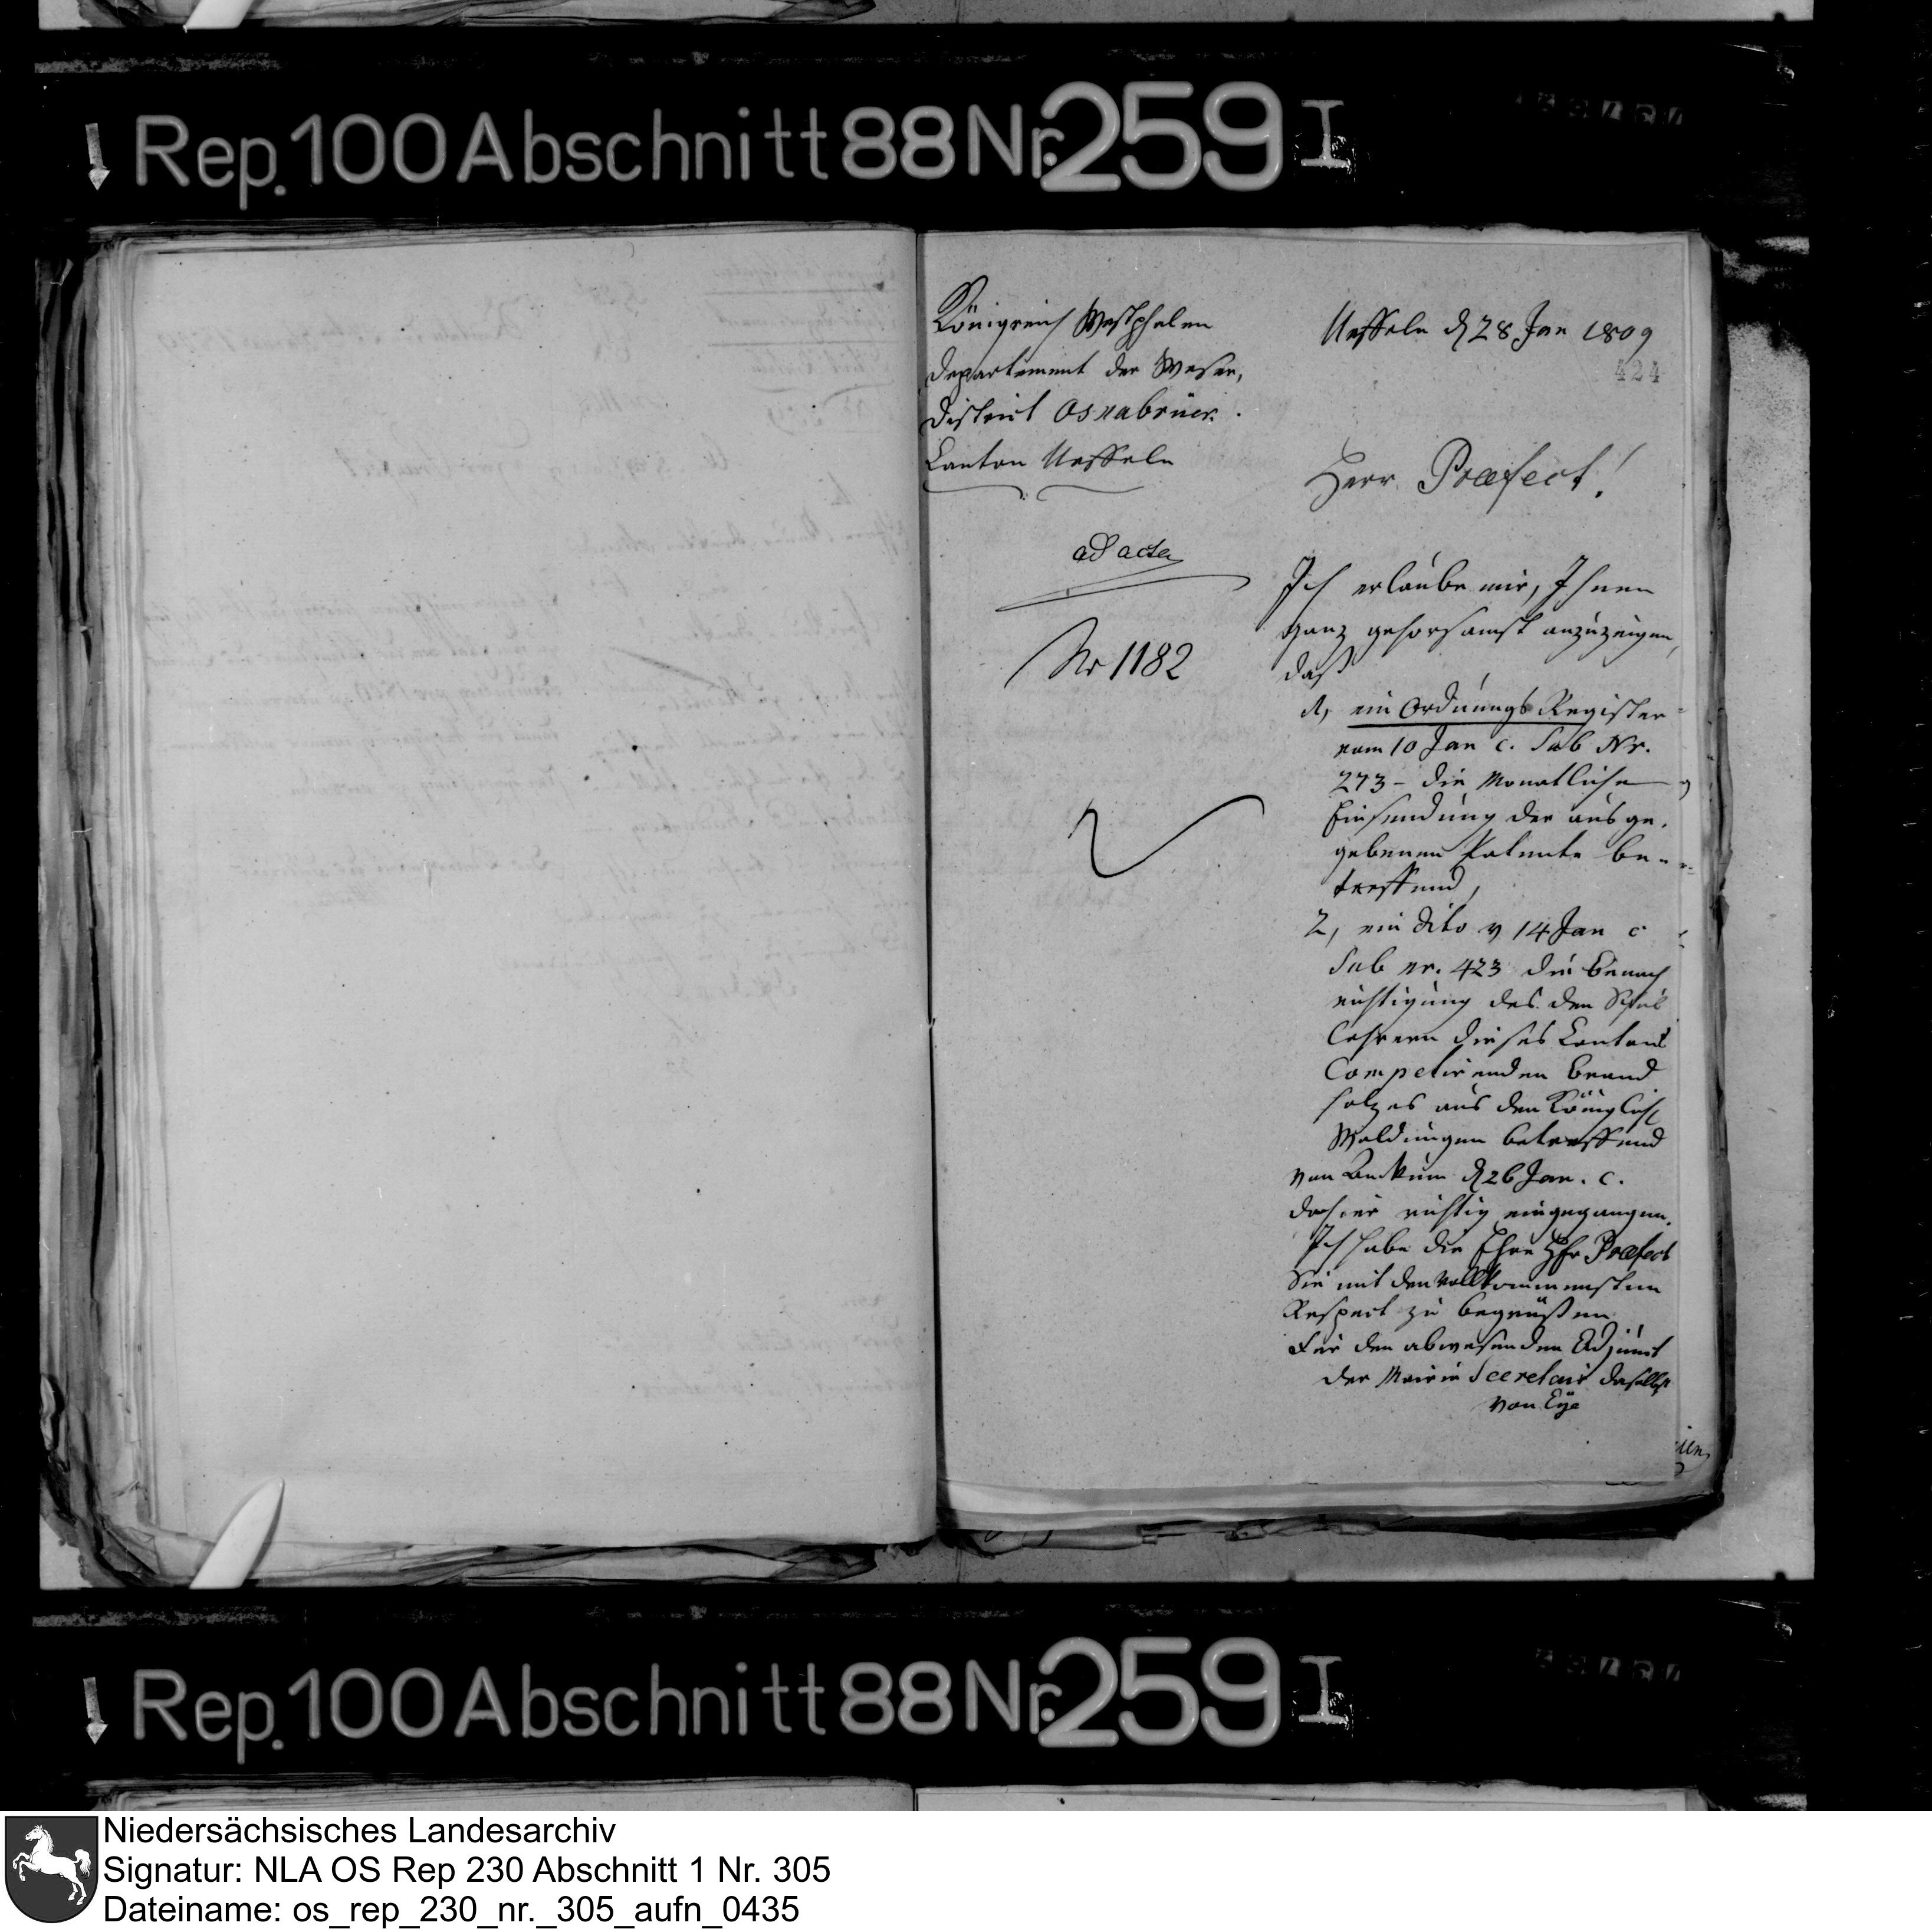 Rep. 100 Abschnitt 88 Nr. 259 I
Königreich Westphalen
Departement der Weser,
District Osnabrück.
Canton Ueffeln
ad acta
Nr 1182
Ueffeln d 28 Jan 1809
424
Herr Præfect!
Ich erlaube mir, Ihnen
ganz gehorsamst anzuzeigen,
daß
1, ein Ordnungs Register
vom 10 Jan c. sub Nr.
273 - die Monatliche
Einsendung der ausge-
gebenen Patente be-
treffend,
2, ein dito v 14 Jan c
sub nr. 423 die Benach
richtigung des den Schul
lehrern dieses Cantons
Competirenden Brand
holzes aus den Königlich
Waldungen betreffend
von Ankum d 26 Jan. c.
dahier richtig eingegangen.
Ich habe die Ehre Hr Præfect
Sie mit den vollkommensten
Respect zu begrüßen
Für den abwesenden Adjunct
der Mairie Secretair daselbst
von Eye
Rep. 100 Abschnitt 88 Nr. 259 I
Niedersächsisches Landesarchiv
Signatur: NLA OS Rep 230 Abschnitt 1 Nr. 305
Dateiname: os_rep_230_nr._305_aufn_0435